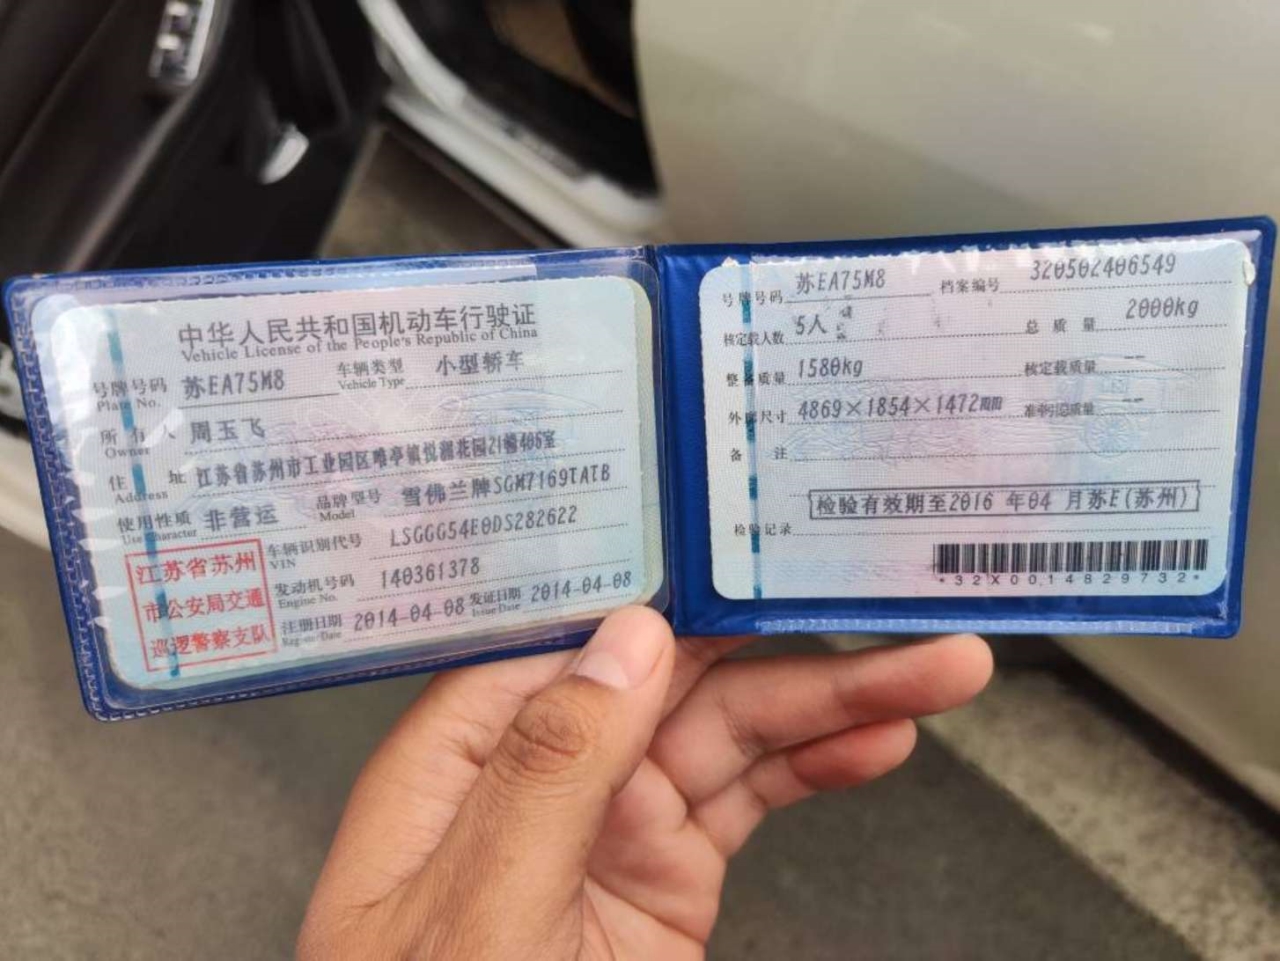 中华人民共和国机动车行驶证
Vehicle License of the People's Republic of China
号牌号码 苏EA75M8 车辆类型 小型轿车
Plate No. Vehicle Type
所有人 周玉飞
Owner
住址 江苏省苏州市工业园区唯亭镇悦湖花园21幢406室
Address
使用性质 非营运 品牌型号 雪佛兰牌SGM7169TATB
Use Character Model
江苏省苏州
市公安局交通
巡逻警察支队
车辆识别代号 LSGGG54E0DS282622
VIN
发动机号码 140361378
Engine No.
注册日期 2014-04-08 发证日期 2014-04-08
Register Date Issue Date
号牌号码 苏EA75M8 档案编号 320502406549
核定载人数 5人 总质量 2000kg
整备质量 1580kg 核定载质量 --
外廓尺寸 4869×1854×1472mm 准牵引总质量 --
备注
检验有效期至2016 年04 月苏E(苏州)
检验记录
*32X0014829732*